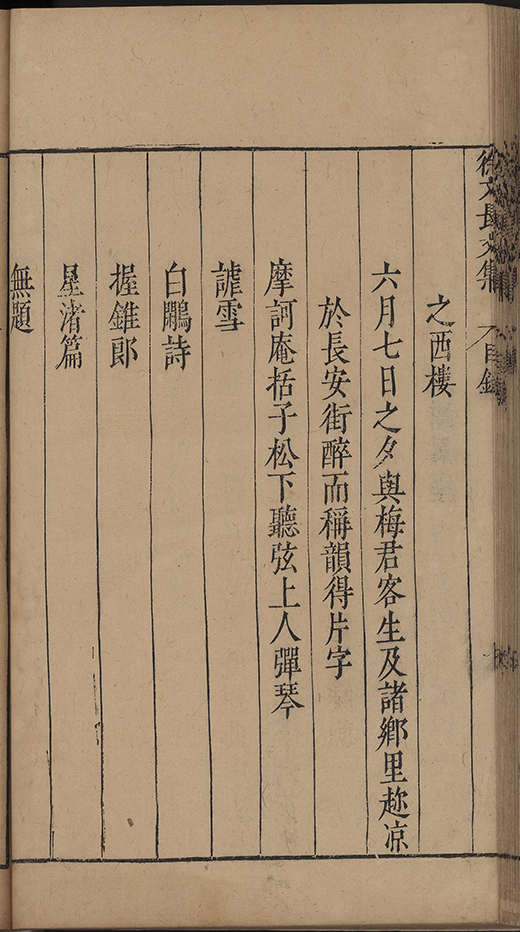 徐文長文集
目錄
之西樓
六月七日之夕與梅君客生及諸鄉里趂凉
於長安街醉而稱韻得片字
摩訶庵括子松下聽弦上人彈琴
謔雪
白鷳詩
握錐郎
星渚篇
無題